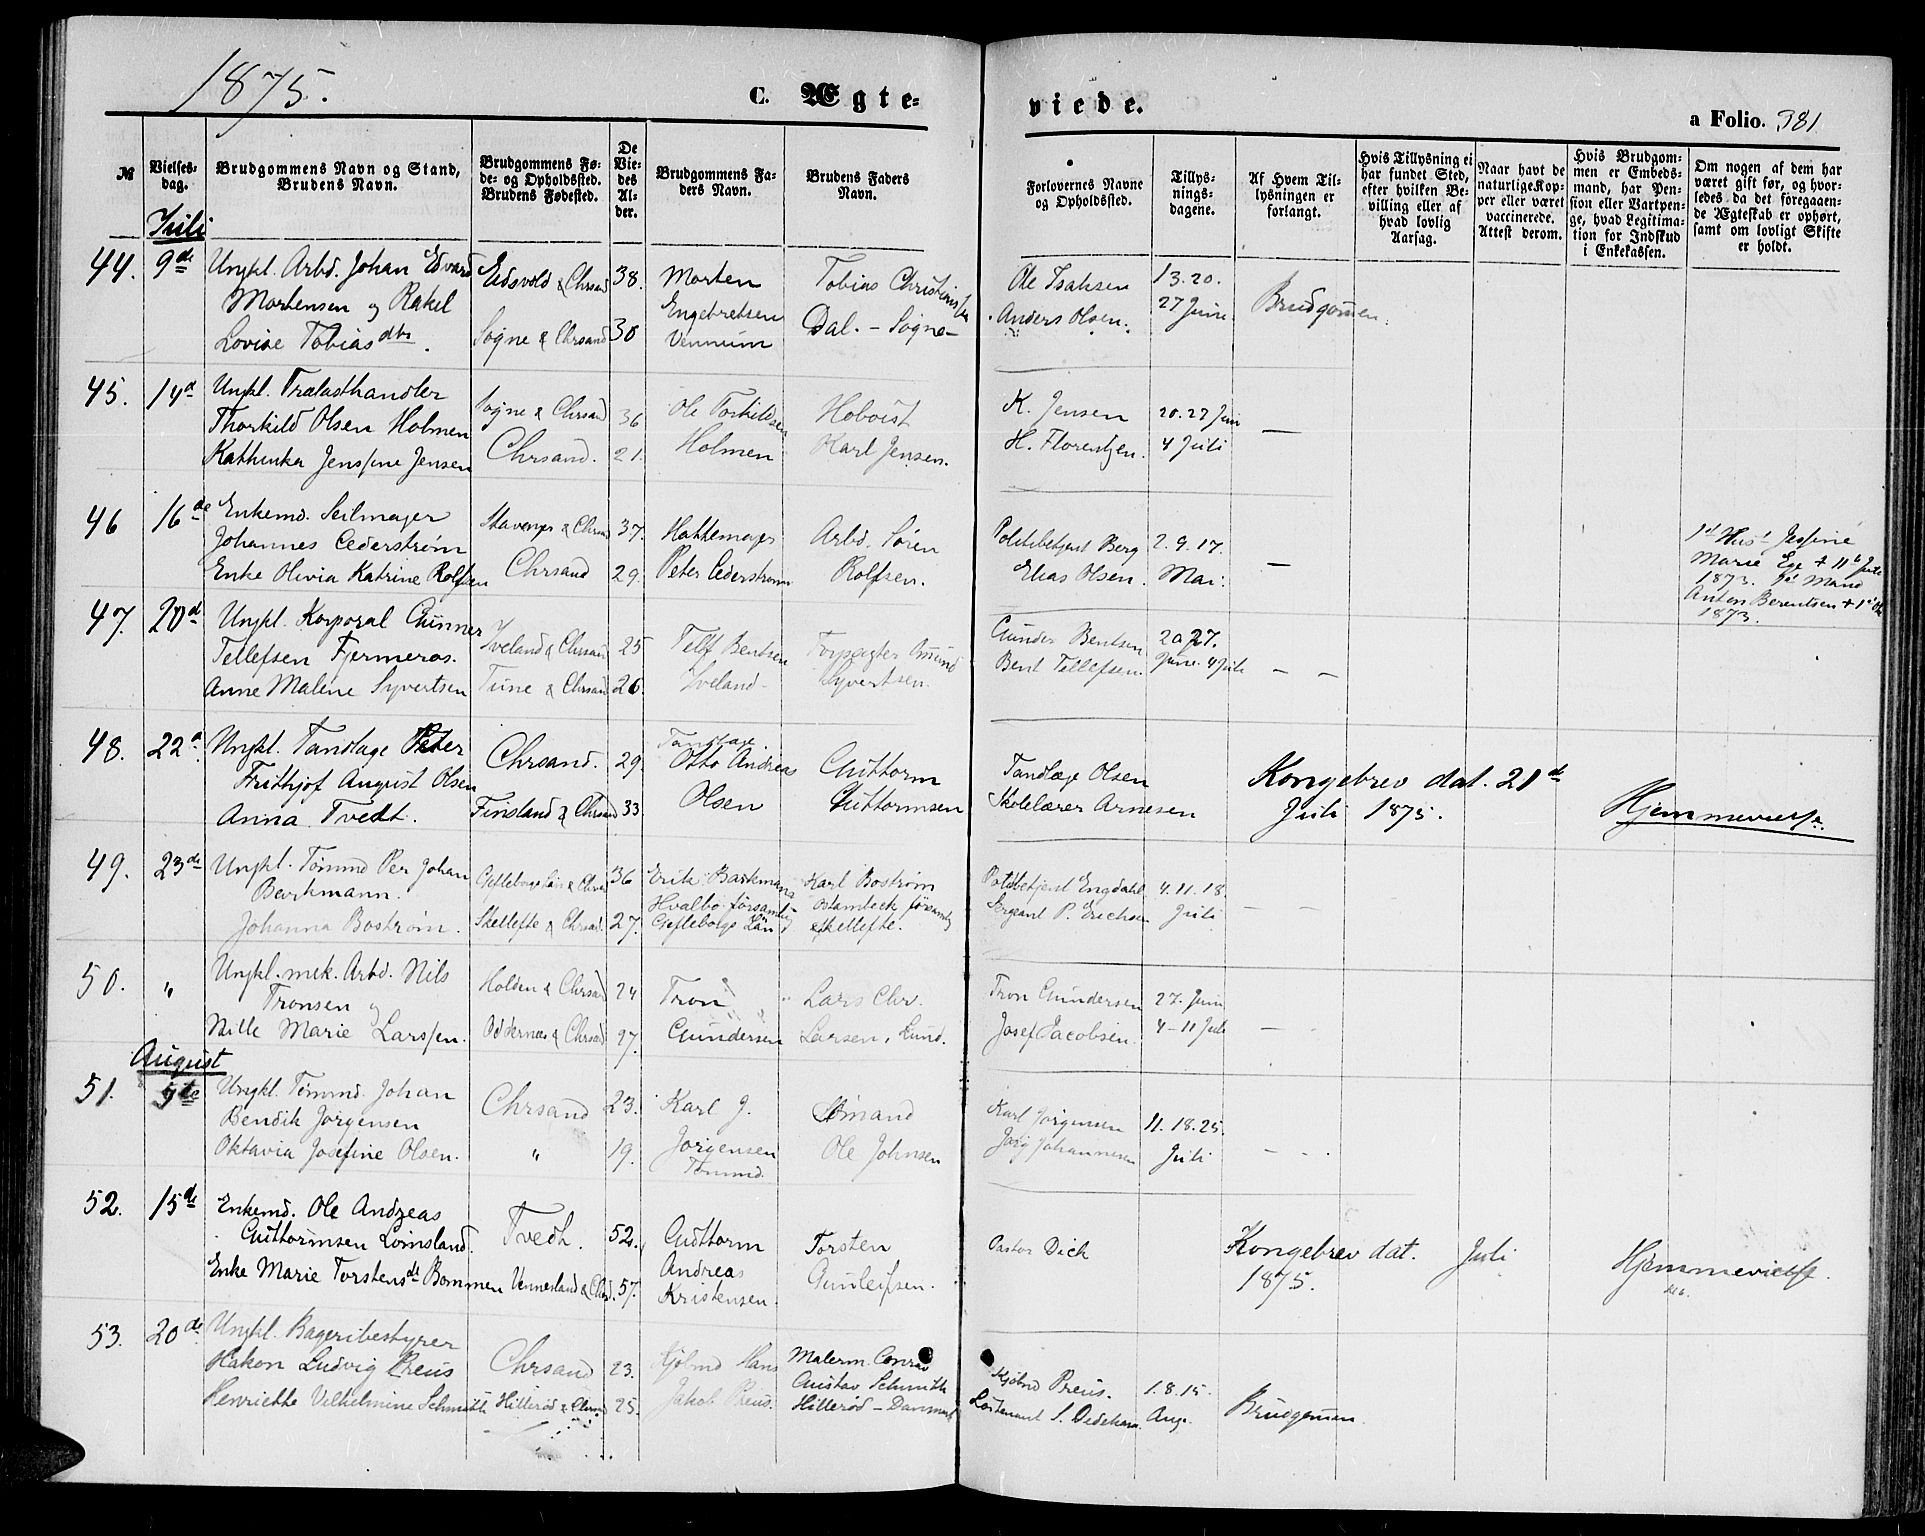 1875.
C. Ægte=
viede.
a Folio. 381
№
Vielses-
dag.
Brudgommens Navn og Stand,
Brudens Navn.
Brudgommens Fø-
de- og Opholdssted.
Brudens Fødested.
De
Vie-
des
Al-
der.
Brudgommens Fa-
ders Navn.
Brudens Faders
Navn.
Forlovernes Navne
og Opholdssted.
Tillys-
nings-
dagene.
Af Hvem Til-
lysningen er
forlangt.
Hvis Tillysning ei
har fundet Sted,
efter hvilken Be-
villing eller af
hvad lovlig
Aarsag.
Naar havt de
naturlige Kop-
per eller været
vaccinerede.
Attest derom.
Hvis Brudgom-
men er Embeds-
mand, har Pen-
sion eller Vartpen-
ge, hvad Legitima-
tion for Indskud
i Enkekassen.
Om nogen af dem har
været gift før, og hvor-
ledes da det foregaaen-
de Ægteskab er ophørt,
samt om lovligt Skifte
er holdt.
Juli
44. 9de Ungkl. Arbd. Johan Edvard Eidsvold & Chrsand 38. Morten Tobias Christians Ole Isaksen 13. 20.
Mortensen og Rakel Engebretsen Anders Olsen. 27 Juni Brudgomen.
Lovise Tobiasdtr. Sogne & Chrsand 30 Vennum Dal. - Sogne -
45. 14d Ungkl. Trælasthandler
Thorkild Olsen Holmen Sogne & Chrsand 36 Ole Torkildsen Hoboist K. Jensen 20. 27 Juni
Kathinka Jenssine Jensen Chrsand. 21. Holmen Karl Jensen. H. Florentzen. 4 Juli —
46 16de Enkemd. Seilmager Stavanger & Chrsand 37. Hattemager Arbd. Sören Politibetjent Berg 2. 9. 17.
Johannes Cederstrøm Elias Olsen. Mai. —
Enke Olivia Katrine Rolfsen Chrsand 29. Peter Cederstrøm Rolfsen.
1st Hust Jessine
Marie Ege + 11te Juli
1873. 1st Mand
Anton Berentsen + 1st
1873.
47. 20d Ungkl. Korporal Gunner Iveland & Chrsand 25 Telf Bentsen Forpagter Amund Gunder Bentsen 20 27.
Tellefsen Fjermeros. Bent Tellefsen. Juni. 4 Juli — —
Anne Malene Syvertsen Tune & Chrsand 26. Iveland - Syvertsen.
48. 22d Ungkl. Tandlæge Peter Chrsand. 29. Tandlæge
Frithjof August Olsen Otto Andreas Guttorm Tandlæge Olsen Kongebrev dat. 21de
Anna Tvedt. Finsland & Chrsand 33. Olsen Guttormsen Skolelærer Arnesen Juli 1875. Hjemmevielse.
49. 23de Ungkl. Tømmd Per Johan Gefleborgs Län & Chrsand 36 Erik Barkmann Karl Bostrøm Politibetjent Engdahl 4. 11. 18
Berkmann. Hvalbo församling församling Sergeant P. Erichsen Juli — —
Johanna Bostrøm. Skellefte & Chrsand. 27. Gefleborgs Län Skellefte.
50. " Ungkl. mek. Arbd. Nils Holden & Chrsand 24 Tron Lars Chr. Tron Gundersen 27. Juni
Tronsen og
Nille Marie Larssen. Oddernes & Chrsand 27. Gundersen Larsen, Lund. Josef Jacobsen. 4-11 Juli — -
August
51. 5te Ungkl. Tømmd. Johan Chrsand 23. Karl J. Sömand Karl Jørgensen 11. 18. 25.
Bendik Jørgensen
Oktavia Josefine Olsen. " 19. Jørgensen Ole Johnsen Johannesen Juli - - .
Tømmd.
52. 15de Enkemd. Ole Andreas
Guttormsen Lomsland. Tvedt. 52. Gudtorm Torsten Pastor Dick Kongebrev dat. Juli Hjemmevielse.
Enke Marie Torstensdt. Bommen Vennesland & Chrsd. 57. Andreas Gunleifsen. 1875.
Kristensen.
53. 20de Ungkl. Bageribestyrer
Hakon Ludvig Preus Chrsand 23. Kjøbmd Hans Malerm. Conrad Kjöbmd Preus. 1. 8. 15.
Henriette Vilhelmine Schmith Hillerød & Chrsand 25. Jakob Preus. Gustav Schmith Løitenant S. Dedekam Aug. Brudgomen.
Hillerød - Danmark